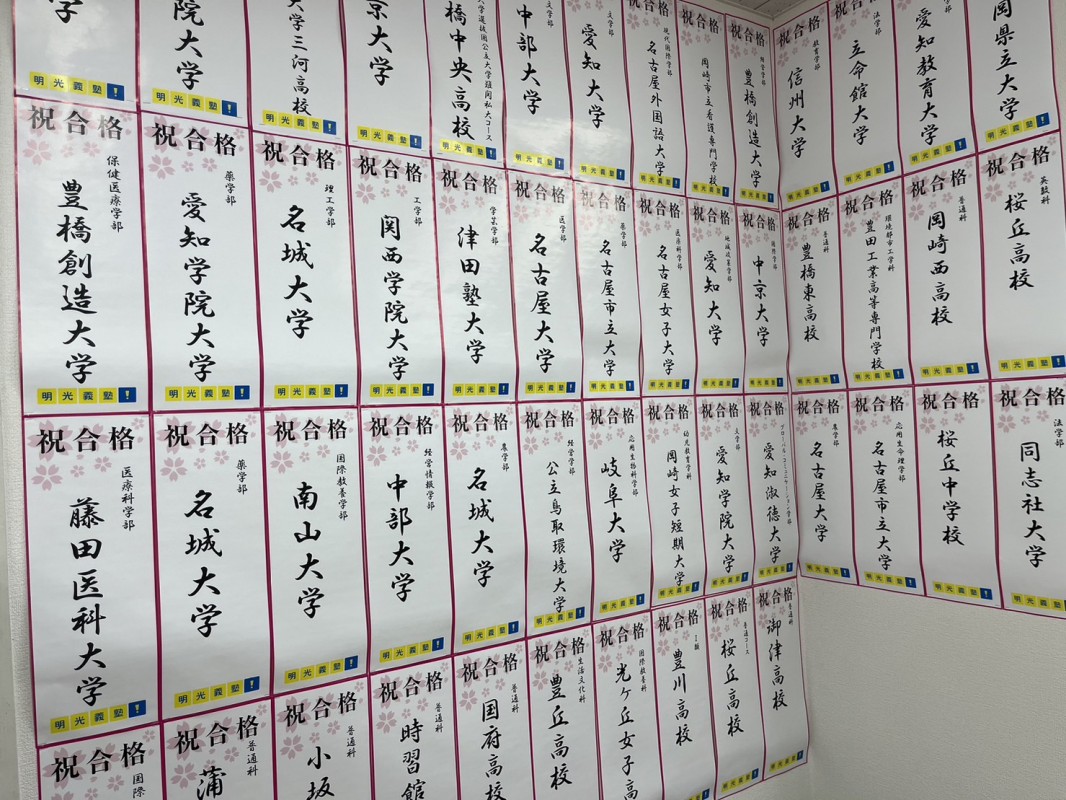 学
明光義塾
院大学
明光義塾
大学三河高校
明光義塾
京大学
明光義塾
橋中央高校
明光義塾
文学部
中部大学
明光義塾
文学部
愛知大学
明光義塾
祝合格
現代国際学部
名古屋外国語大学
明光義塾
祝合格
岡崎市立看護専門学校
明光義塾
祝合格
豊橋創造大学
明光義塾
祝合格
教育学部
信州大学
明光義塾
祝合格
法学部
立命館大学
明光義塾
愛知教育大学
明光義塾
岡県立大学
明光義塾
祝合格
保健医療学部
豊橋創造大学
明光義塾
祝合格
薬学部
愛知学院大学
明光義塾
祝合格
理工学部
名城大学
明光義塾
祝合格
工学部
関西学院大学
明光義塾
祝合格
学芸学部
津田塾大学
明光義塾
祝合格
医学部
名古屋大学
明光義塾
祝合格
薬学部
名古屋市立大学
明光義塾
祝合格
医療科学部
名古屋女子大学
明光義塾
祝合格
地域政策学部
愛知大学
明光義塾
祝合格
国際学部
中京大学
明光義塾
祝合格
普通科
豊橋東高校
明光義塾
祝合格
環境都市工学科
豊田工業高等専門学校
明光義塾
祝合格
普通科
岡崎西高校
明光義塾
祝合格
英数科
桜丘高校
明光義塾
祝合格
医療科学部
藤田医科大学
明光義塾
祝合格
薬学部
名城大学
明光義塾
祝合格
国際教養学部
南山大学
明光義塾
祝合格
経営情報学部
中部大学
明光義塾
祝合格
農学部
名城大学
明光義塾
祝合格
経営学部
公立鳥取環境大学
明光義塾
祝合格
応用生物科学部
岐阜大学
明光義塾
祝合格
幼児教育学科
岡崎女子短期大学
明光義塾
祝合格
文学部
愛知学院大学
明光義塾
祝合格
グローバル・コミュニケーション学部
愛知淑徳大学
明光義塾
祝合格
農学部
名古屋大学
明光義塾
祝合格
応用生命理学部
名古屋市立大学
明光義塾
祝合格
桜丘中学校
明光義塾
祝合格
法学部
同志社大学
明光義塾
祝合格
国際
祝合格
普通科
蒲
祝合格
普通科
小坂
祝合格
普通科
時習館
祝合格
普通科
国府高校
祝合格
生活文化科
豊丘高校
祝合格
国際教養科
光ケ丘女子高
祝合格
豊川高校
明光義塾
祝合格
普通コース
桜丘高校
明光義塾
祝合格
普通科
御津高校
明光義塾